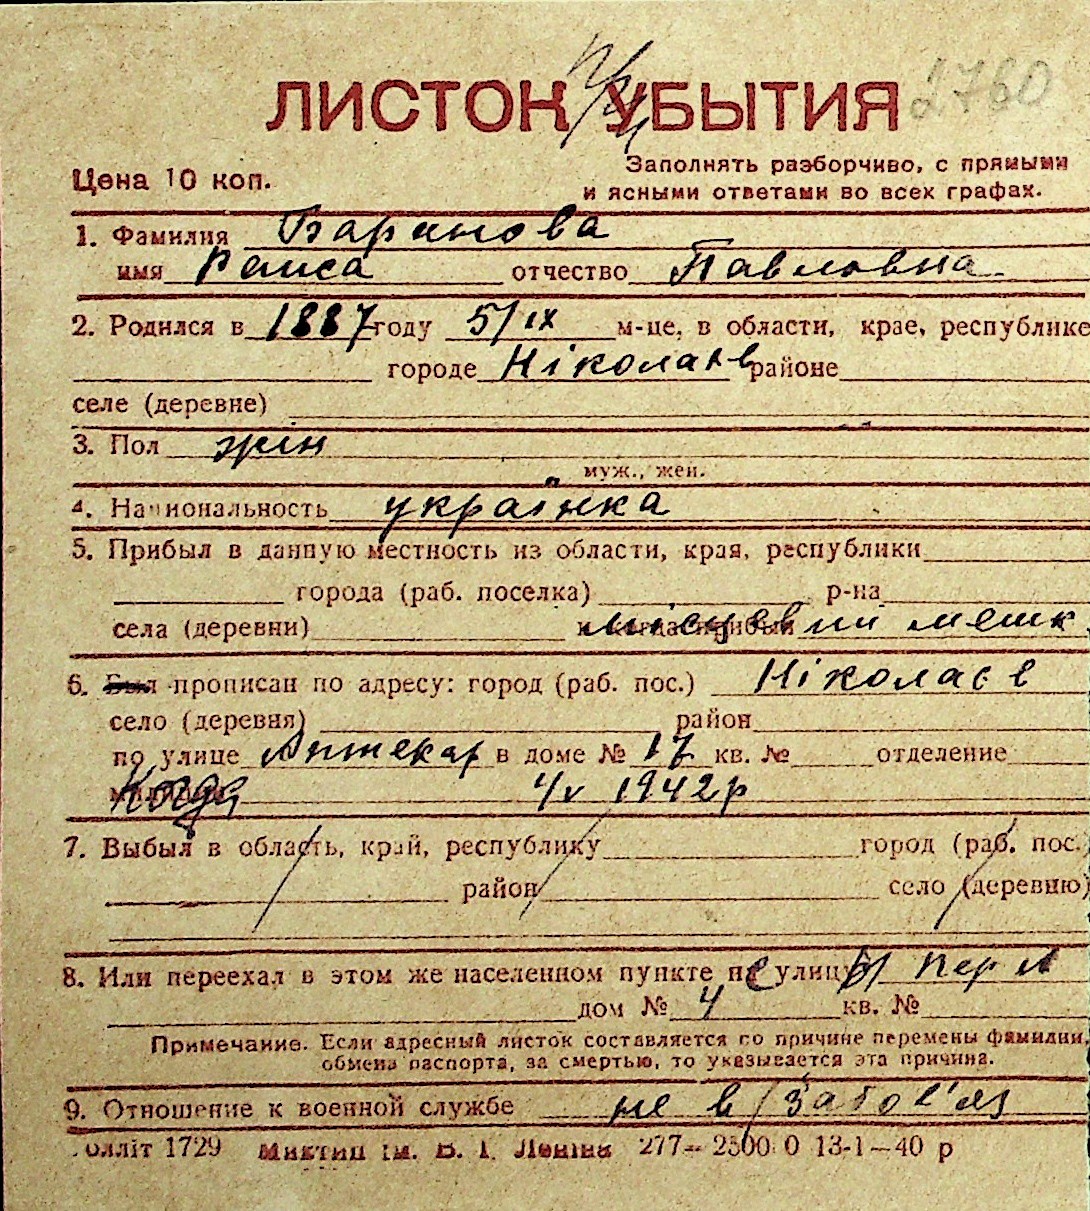 ЛИСТОК УБЫТИЯ 2760
Цена 10 коп.
Заполнять разборчиво, с прямыми
и ясными ответами во всех графах.
1. Фамилия Баринова
имя Раиса отчество Павловна
2. Родился в 1887 году 5/IX м-це, в области, крае, республике
городе Ніколаєв районе
селе (деревне)
3. Пол жін
муж., жен.
4. Национальность українка
5. Прибыл в данную местность из области, края, республики
города (раб. поселка) р-на
села (деревни) місцевий мешк.
6. Был прописан по адресу: город (раб. пос.) Ніколаєв
село (деревня) район
по улице Аптекар в доме № 17 кв. № отделение
Когда 4/V 1942 р
7. Выбыл в область, край, республику город (раб. пос.
район село (деревню)
8. Или переехал в этом же населенном пункте по улице
дом № 4 кв. №
Примечание. Если адресный листок составляется по причине перемены фамилии,
обмена паспорта, за смертью, то указывается эта причина.
9. Отношение к военной службе не в/забов'яз
олліт 1729 Миктип ім. В. І. Леніна 277—2500.0 13-1—40 р